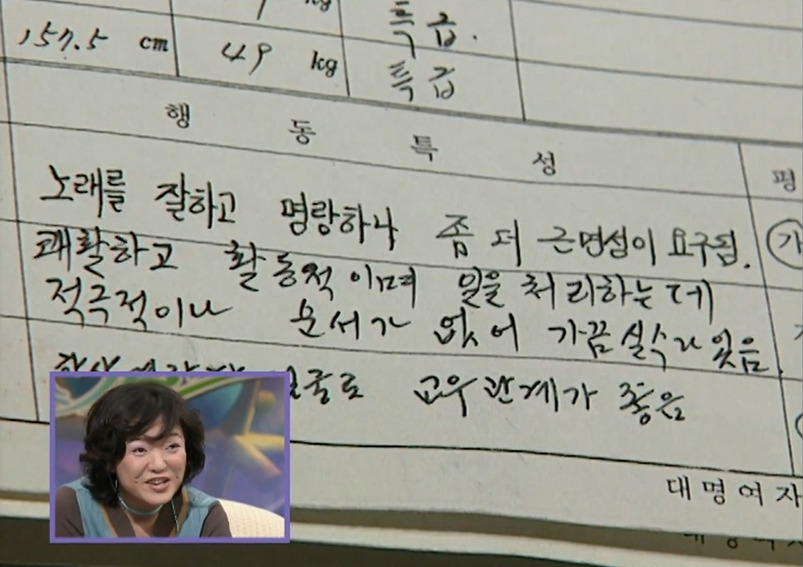 kg 특급.
157.5 cm 49 kg 특급
행 동 특 성
평
노래를 잘하고 명랑하나 좀 더 근면성이 요구됨. 가
쾌활하고 활동적이며 일을 처리하는데
적극적이나 순서가 없어 가끔 실수가 있음.
항상 얼굴로 교우관계가 좋음
대명여자